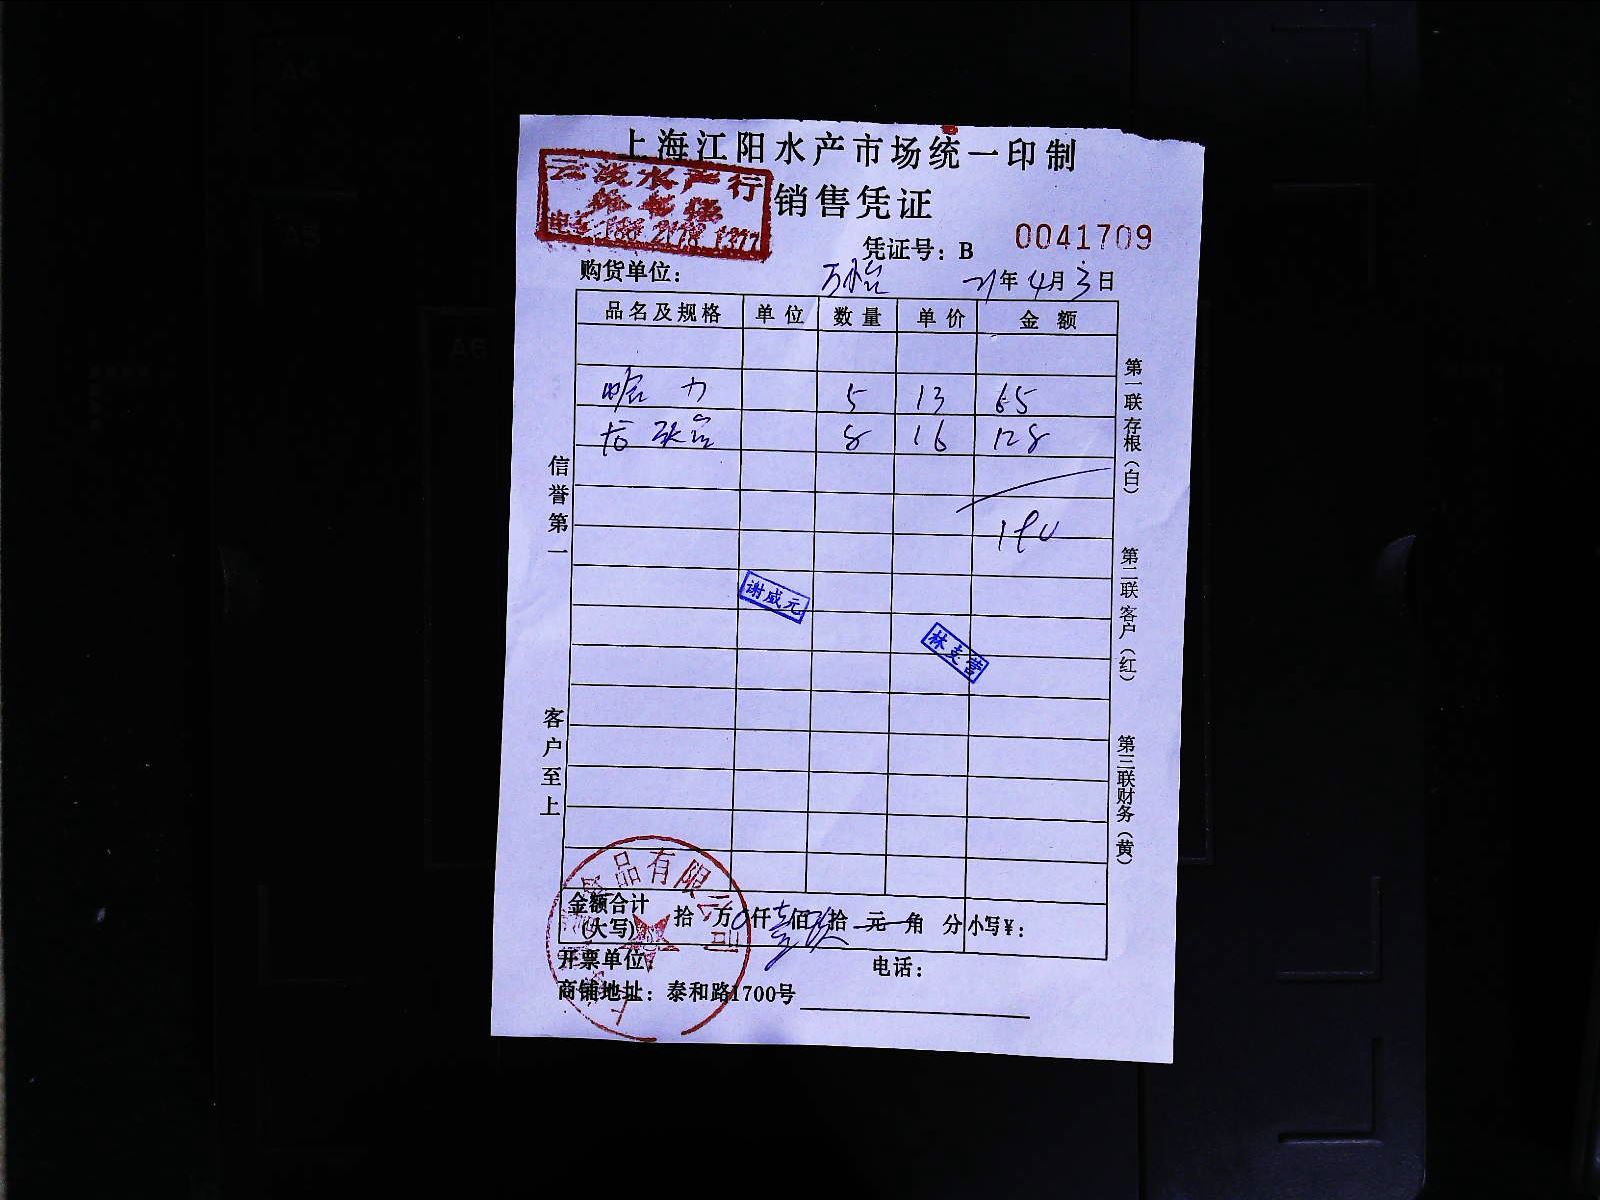 上海江阳水产市场统一印制
云淡水产行
销售凭证
凭证号：B 0041709
购货单位： 万怡 21年4月3日
品名及规格 单位 数量 单价 金额
哈力 5 13 65
8 16 128
190
谢成元
林支营
信誉第一
客户至上
第一联存根（白）
第二联客户（红）
第三联财务（黄）
品有限公司
金额合计（大写） 拾 万 0仟 壹佰 玖拾 元 角 分 小写¥：
开票单位： 电话：
商铺地址：泰和路1700号